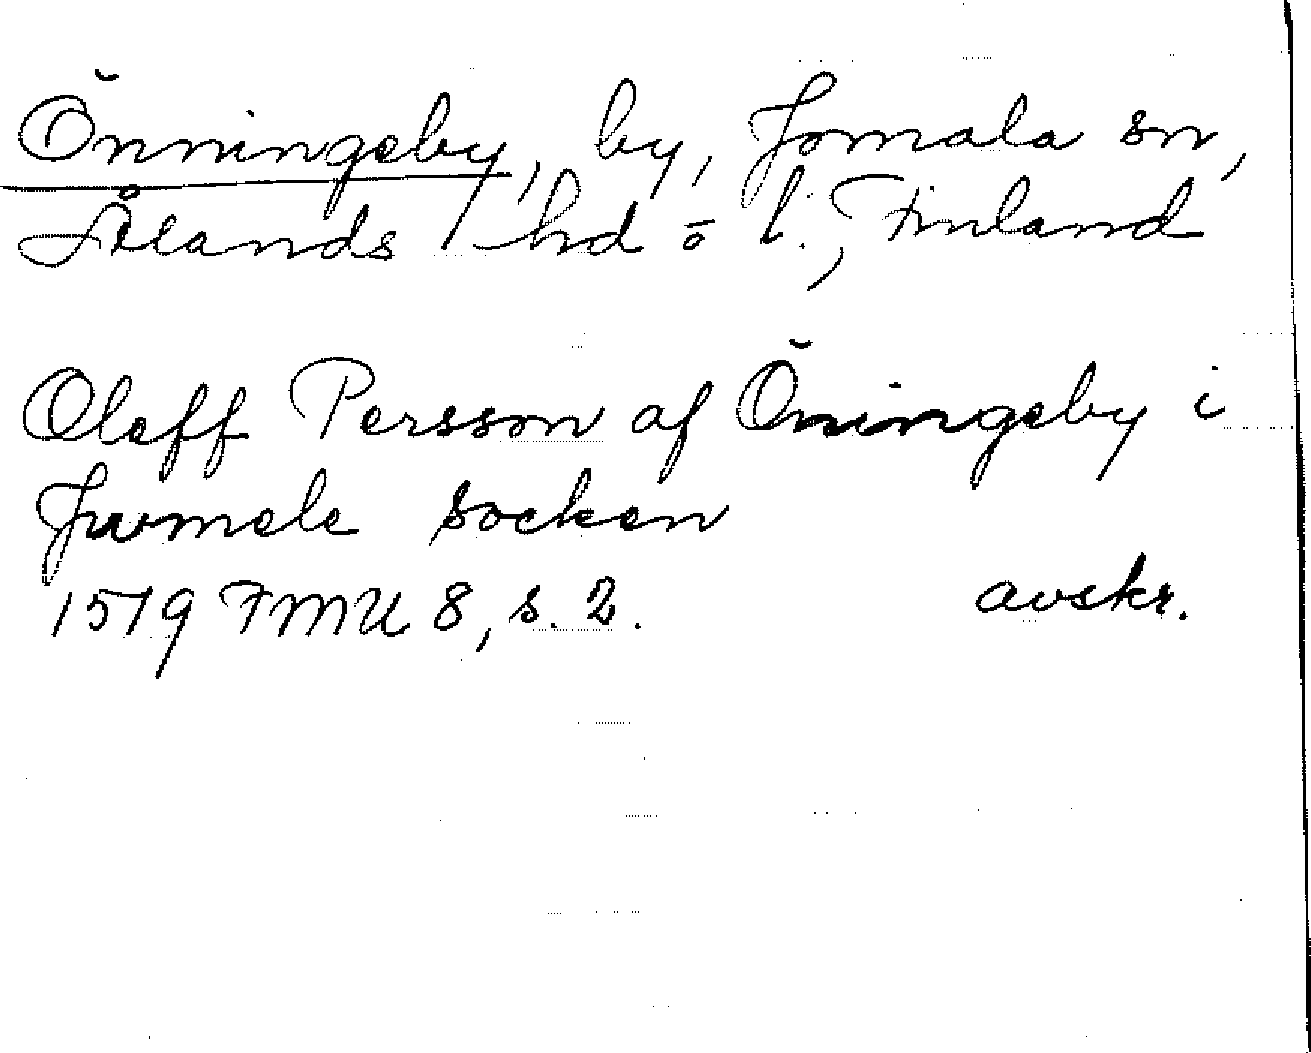 Önningeby, by, Jomala sn,
Ålands hd o l., Finland
Oleff Persson af Öningeby i
Jwmele socken
1519 FMU 8, s. 2. avskr.